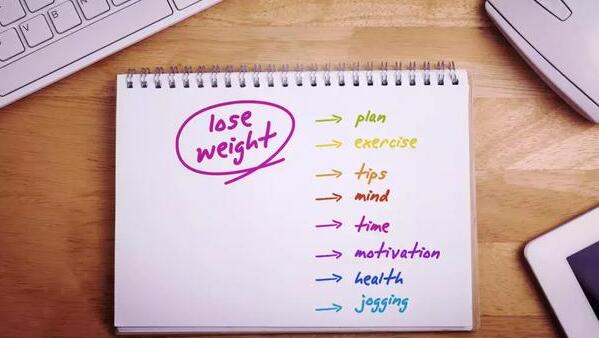 lose
weight
→ plan
→ exercise
→ tips
→ mind
→ time
→ motivation
→ health
→ jogging